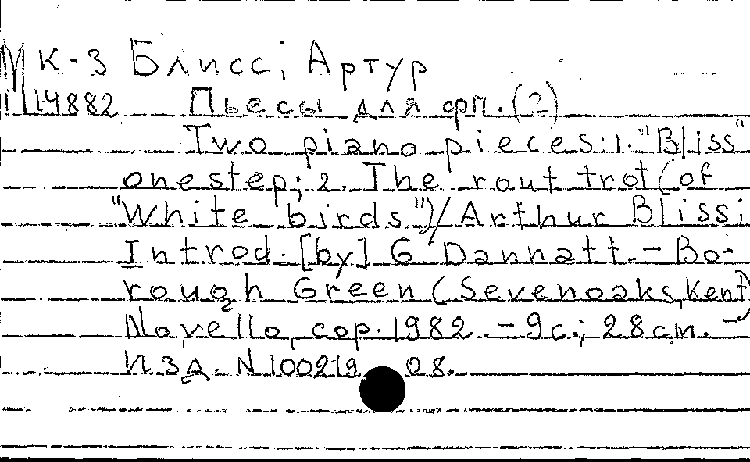 К-3 Блисс, Артур
14882 Пьесы для фп. (2)
Two piano pieces: 1. "Bliss"
one step; 2. The rout trot (of
"White birds")/Arthur Bliss;
Introd. [by] G Dannatt. - Bo-
rough Green (Sevenoaks, Kent)
Novello, cop. 1982. - 9 с.; 28 cm. -
Изд. N 100219 08.